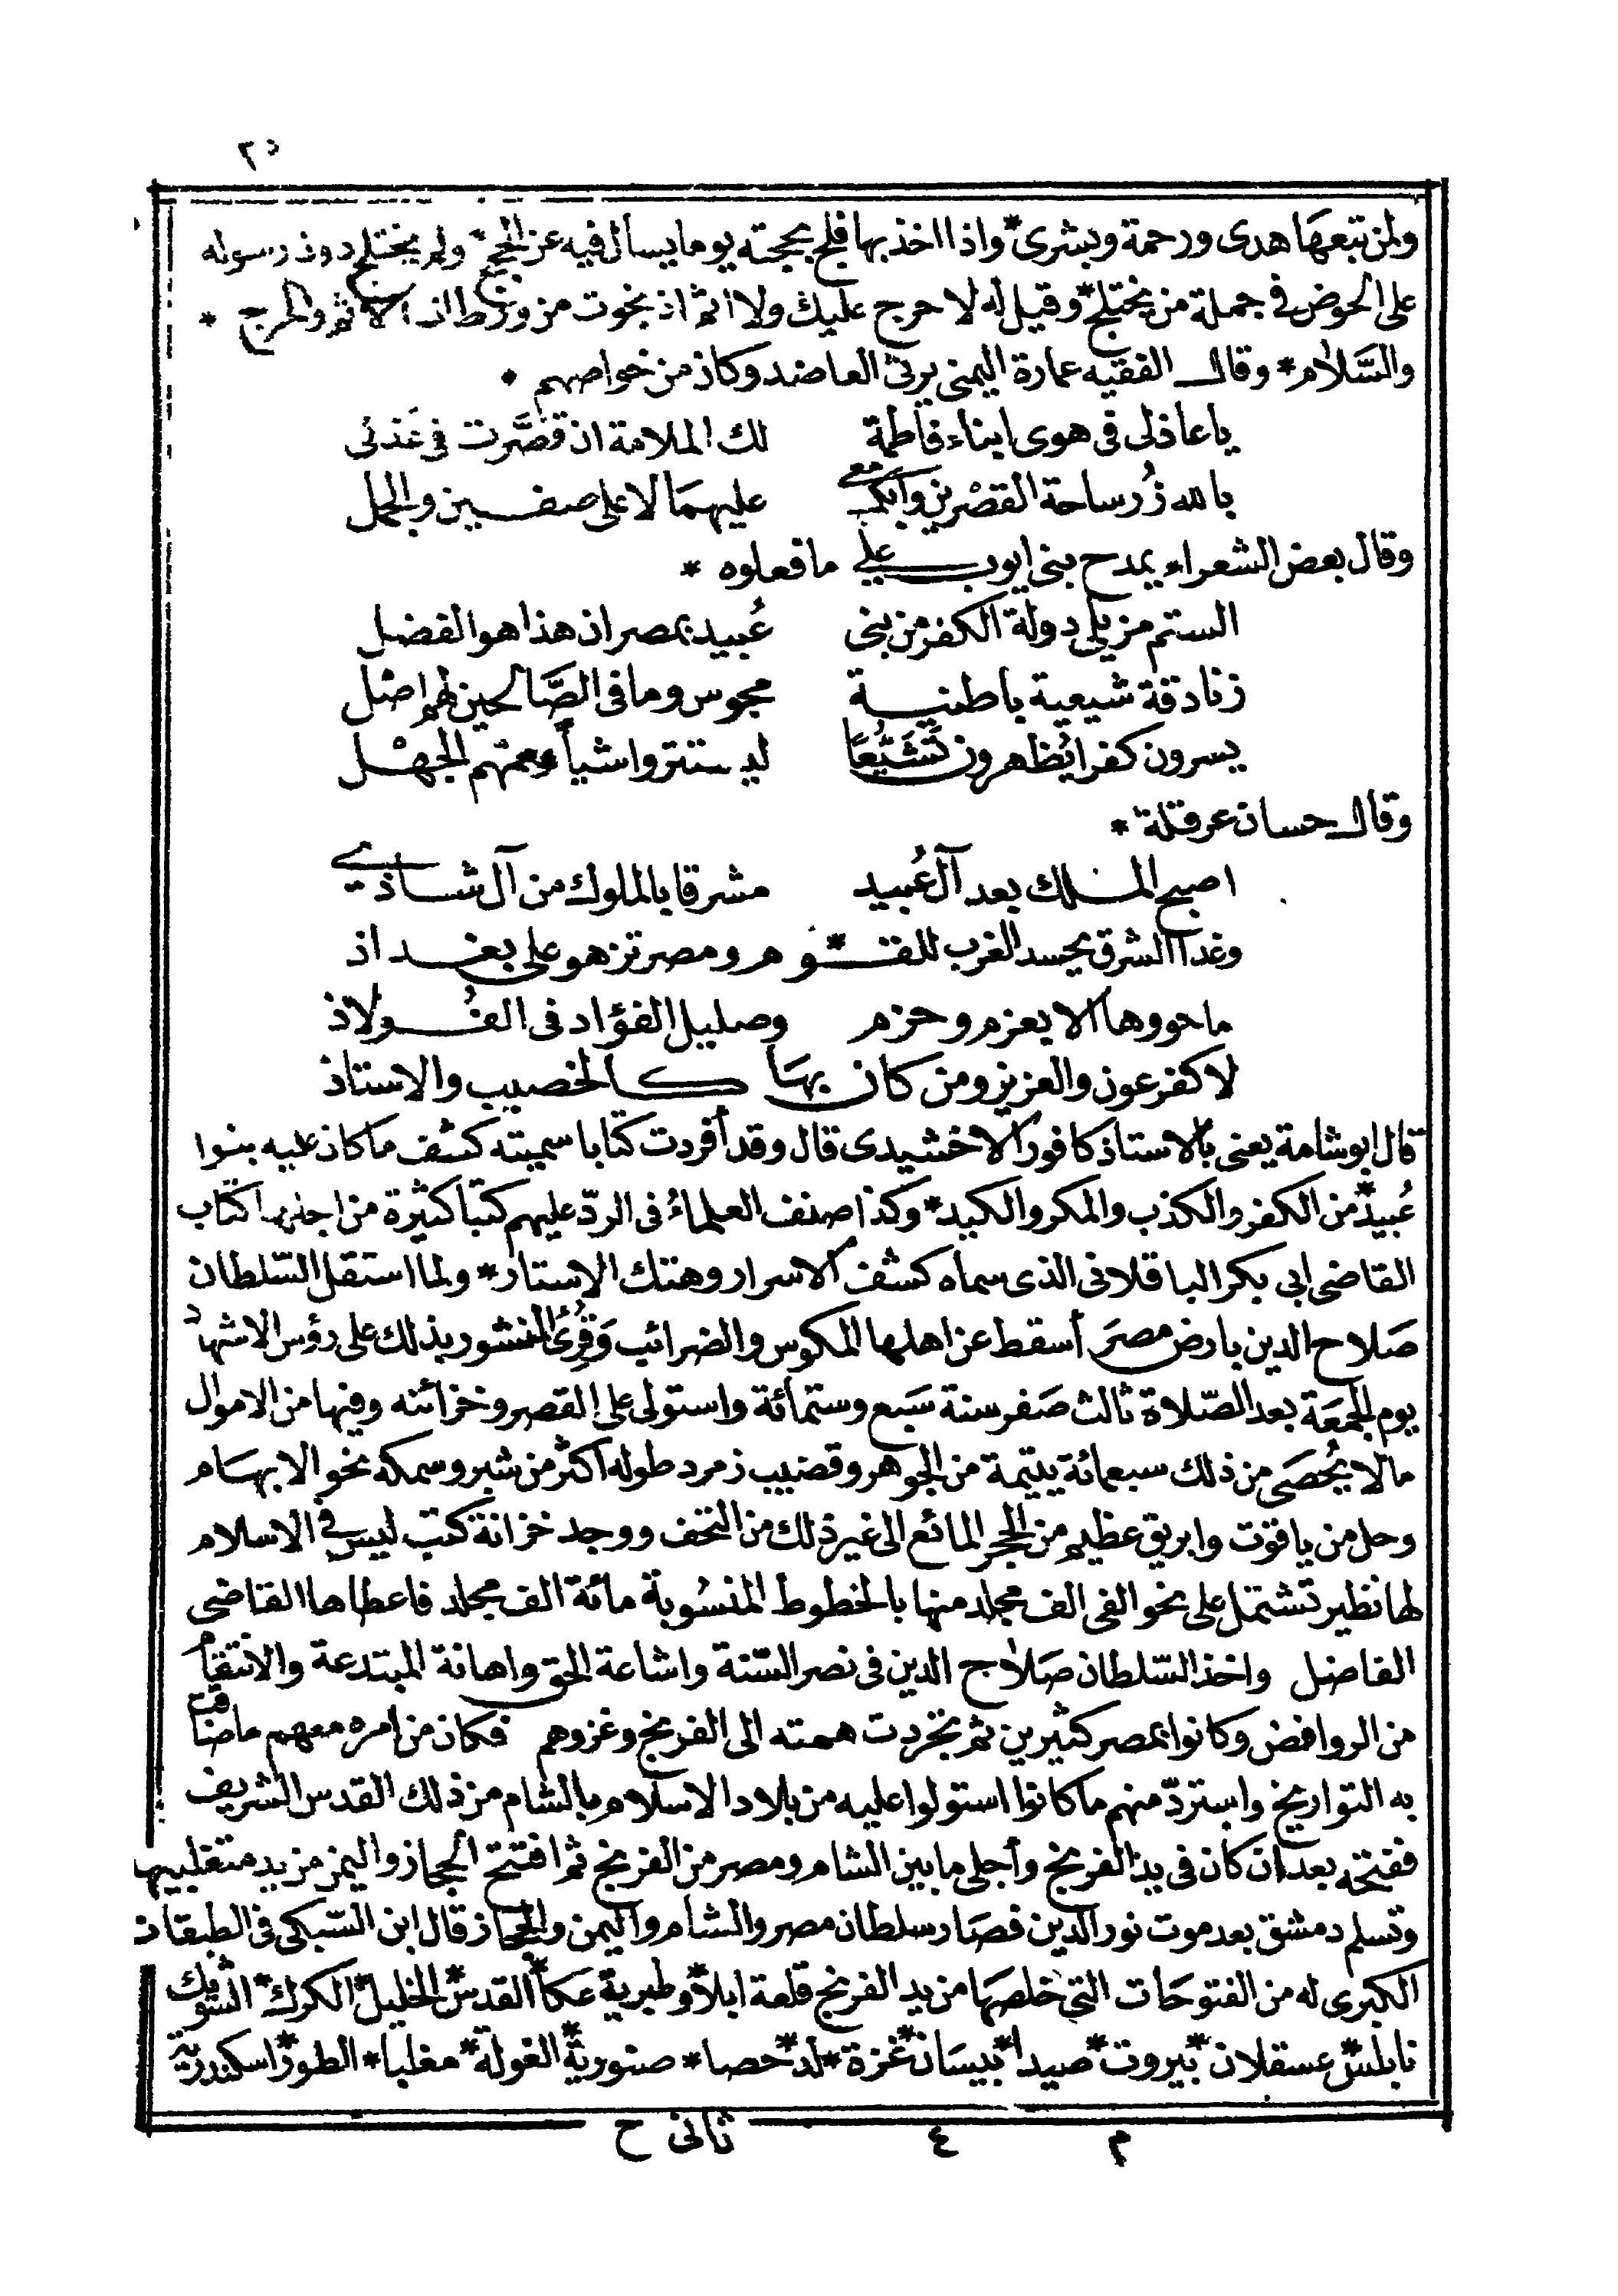 ٢٥
ولمن تبعها هدى ورحمة وبشرى * واذا اخذ بها فلج بحجته يوما يسأل فيه عن الحجج * ولم يختلج دون رسوله
على الحوض فى جملة من يختلج * وقيل له لا حرج عليك ولا اثم اذ نجوت من ورطات الاثم والحرج *
والسّلام * وقال الفقيه عمارة اليمنى يرثى العاضد وكان من خواصهم *
يا عاذلى فى هوى ابناء فاطمة لك الملامة ان قصَّرت فى عَذلى
بالله زُر ساحة القصْرين وابك معى عليهما لا على صفين والجمل
وقال بعض الشعراء يمدح بنى ايوب على ما فعلوه *
الستم مزيلى دولة الكفر من بنى عُبيد بمصر ان هذا هو الفضل
زنادقة شيعية باطنية مجوس وما فى الصَّالحين لهم اصْل
يسرون كفرا يُظهرون تَشَيُّعًا ليستتروا شيأ وعمتهم الجهْل
وقال حسان عرقلة *
اصبح الملك بعد آل عُبيد مشرقا بالملوك من آل شاذى
وغدا الشرق يحسد الغرب للقو * م ومصر تزهو على بغداذ
ما حووها الا بعزم وحزم وصليل الفؤاد فى الفُولاذ
لا كفرعون والعزيز ومن كان بها كالخصيب والاستاذ
قال ابو شامة يعنى بالاستاذ كافور الاخشيدى قال وقد أفردت كتابا سميته كشف ما كان عليه بنوا
عُبيد * من الكفر والكذب والمكر والكيد * وكذا صنف العلماءُ فى الردّ عليهم كتبا كثيرة من اجلها كتاب
القاضى ابى بكر الباقلانى الذى سماه كشف الاسرار وهتك الاستار * ولما استقل السّلطان
صَلاح الدين بارض مصرَ أسقط عن اهلها المكوس والضرائب وَقُرِئَ المنشور بذلك على رؤس الاشهاد
يوم الجمعَة بعد الصّلاة ثالث صَفر سنة سَبع وستمائة واستولى على القصر وخزائنه وفيها من الاموال
ما لا يُحصَى من ذلك سبعمائة يتيمة من الجوهر وقضيب زمرد طوله اكثر من شبر وسمكه نحو الابهام
وحل من ياقوت وابريق عظيم من الحجر المائع الى غير ذلك من التحف ووجد خزانة كتب ليس فى الاسلام
لها نظير تشتمل على نحو الفى الف مجلد منها بالخطوط المنسُوبة مائة الف مجلد فاعطاها القاضى
الفاضل واخذ السّلطان صَلاح الدين فى نصر السّنة واشاعة الحق واهانة المبتدعة والانتقام
من الروافض وكانوا بمصر كثيرين ثم تجردت همته الى الفرنج وغزوهم فكان من امره معهم ما ضاقت
به التواريخ واستردّ منهم ما كانوا استولوا عليه من بلاد الاسلام بالشام من ذلك القدس الشريف
ففتحه بعد ان كان فى يد الفرنج وأجلى ما بين الشام ومصر من الفرنج ثم افتتح الحجاز واليمن من يد متغلبيها
وتسلم دمشق بعد موت نور الدين فصَار سلطان مصر والشام واليمن والحجاز قال ابن السّبكى فى الطبقات
الكبرى له من الفتوحَات التى خلصهَا من يد الفرنج قلعة ايلا * وطبرية * عكا * القدس * الخليل * الكرك * الشوبك
نابلس * عسقلان * بيروت * صيدا * بيسان * غزة * لد * حصا * صفورية * الفولة * مغليا * الطور * اسكندرية
م ٤ ثانى ح